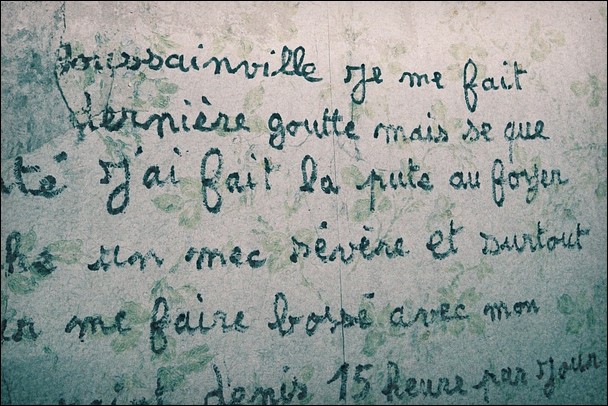 Goussainville je me fait
dernière goutte mais se que
té j'ai fait la pute au foyer
he un mec sévère et surtout
er me faire bossé avec mon
denis 15 heure par jour